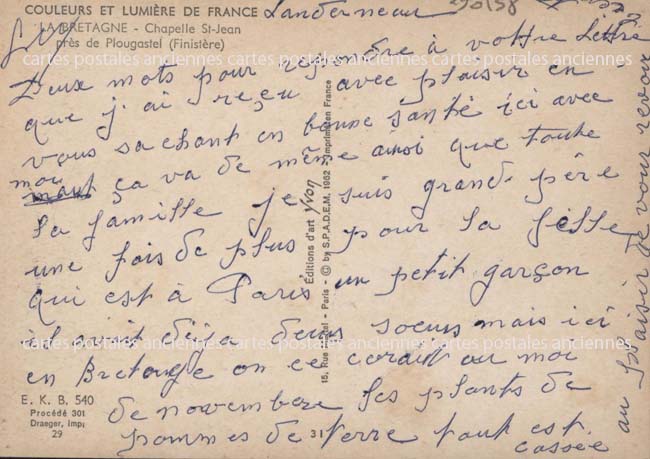 COULEURS ET LUMIÈRE DE FRANCE
LA BRETAGNE - Chapelle St-Jean
près de Plougastel (Finistère)
Landerneau
Deux mots pour repondre à vottre Lettre
que j'ai reçu avec plaisir en
vous sachant en bonne santé ici avec
moi
ça va de même ainsi que toute
la famille je suis grand père
une fois de plus pour la fille
qui est à Paris un petit garçon
il avait déja deux soeurs mais ici
en Bretange on ce corait au moi
de novembere les plants de
pommes de terre tout est
cassée
au plaisir de vous revoir
Editions d'art Yvon
15, Rue Martel - Paris - © by S.P.A.D.E.M. 1962 Imprimé en France
E. K. B. 540
Procédé 301
Draeger, imp.
29
31
cartes postales anciennes cartes postales anciennes cartes postales anciennes
cartes postales anciennes cartes postales anciennes cartes postales anciennes
cartes postales anciennes cartes postales anciennes cartes postales anciennes